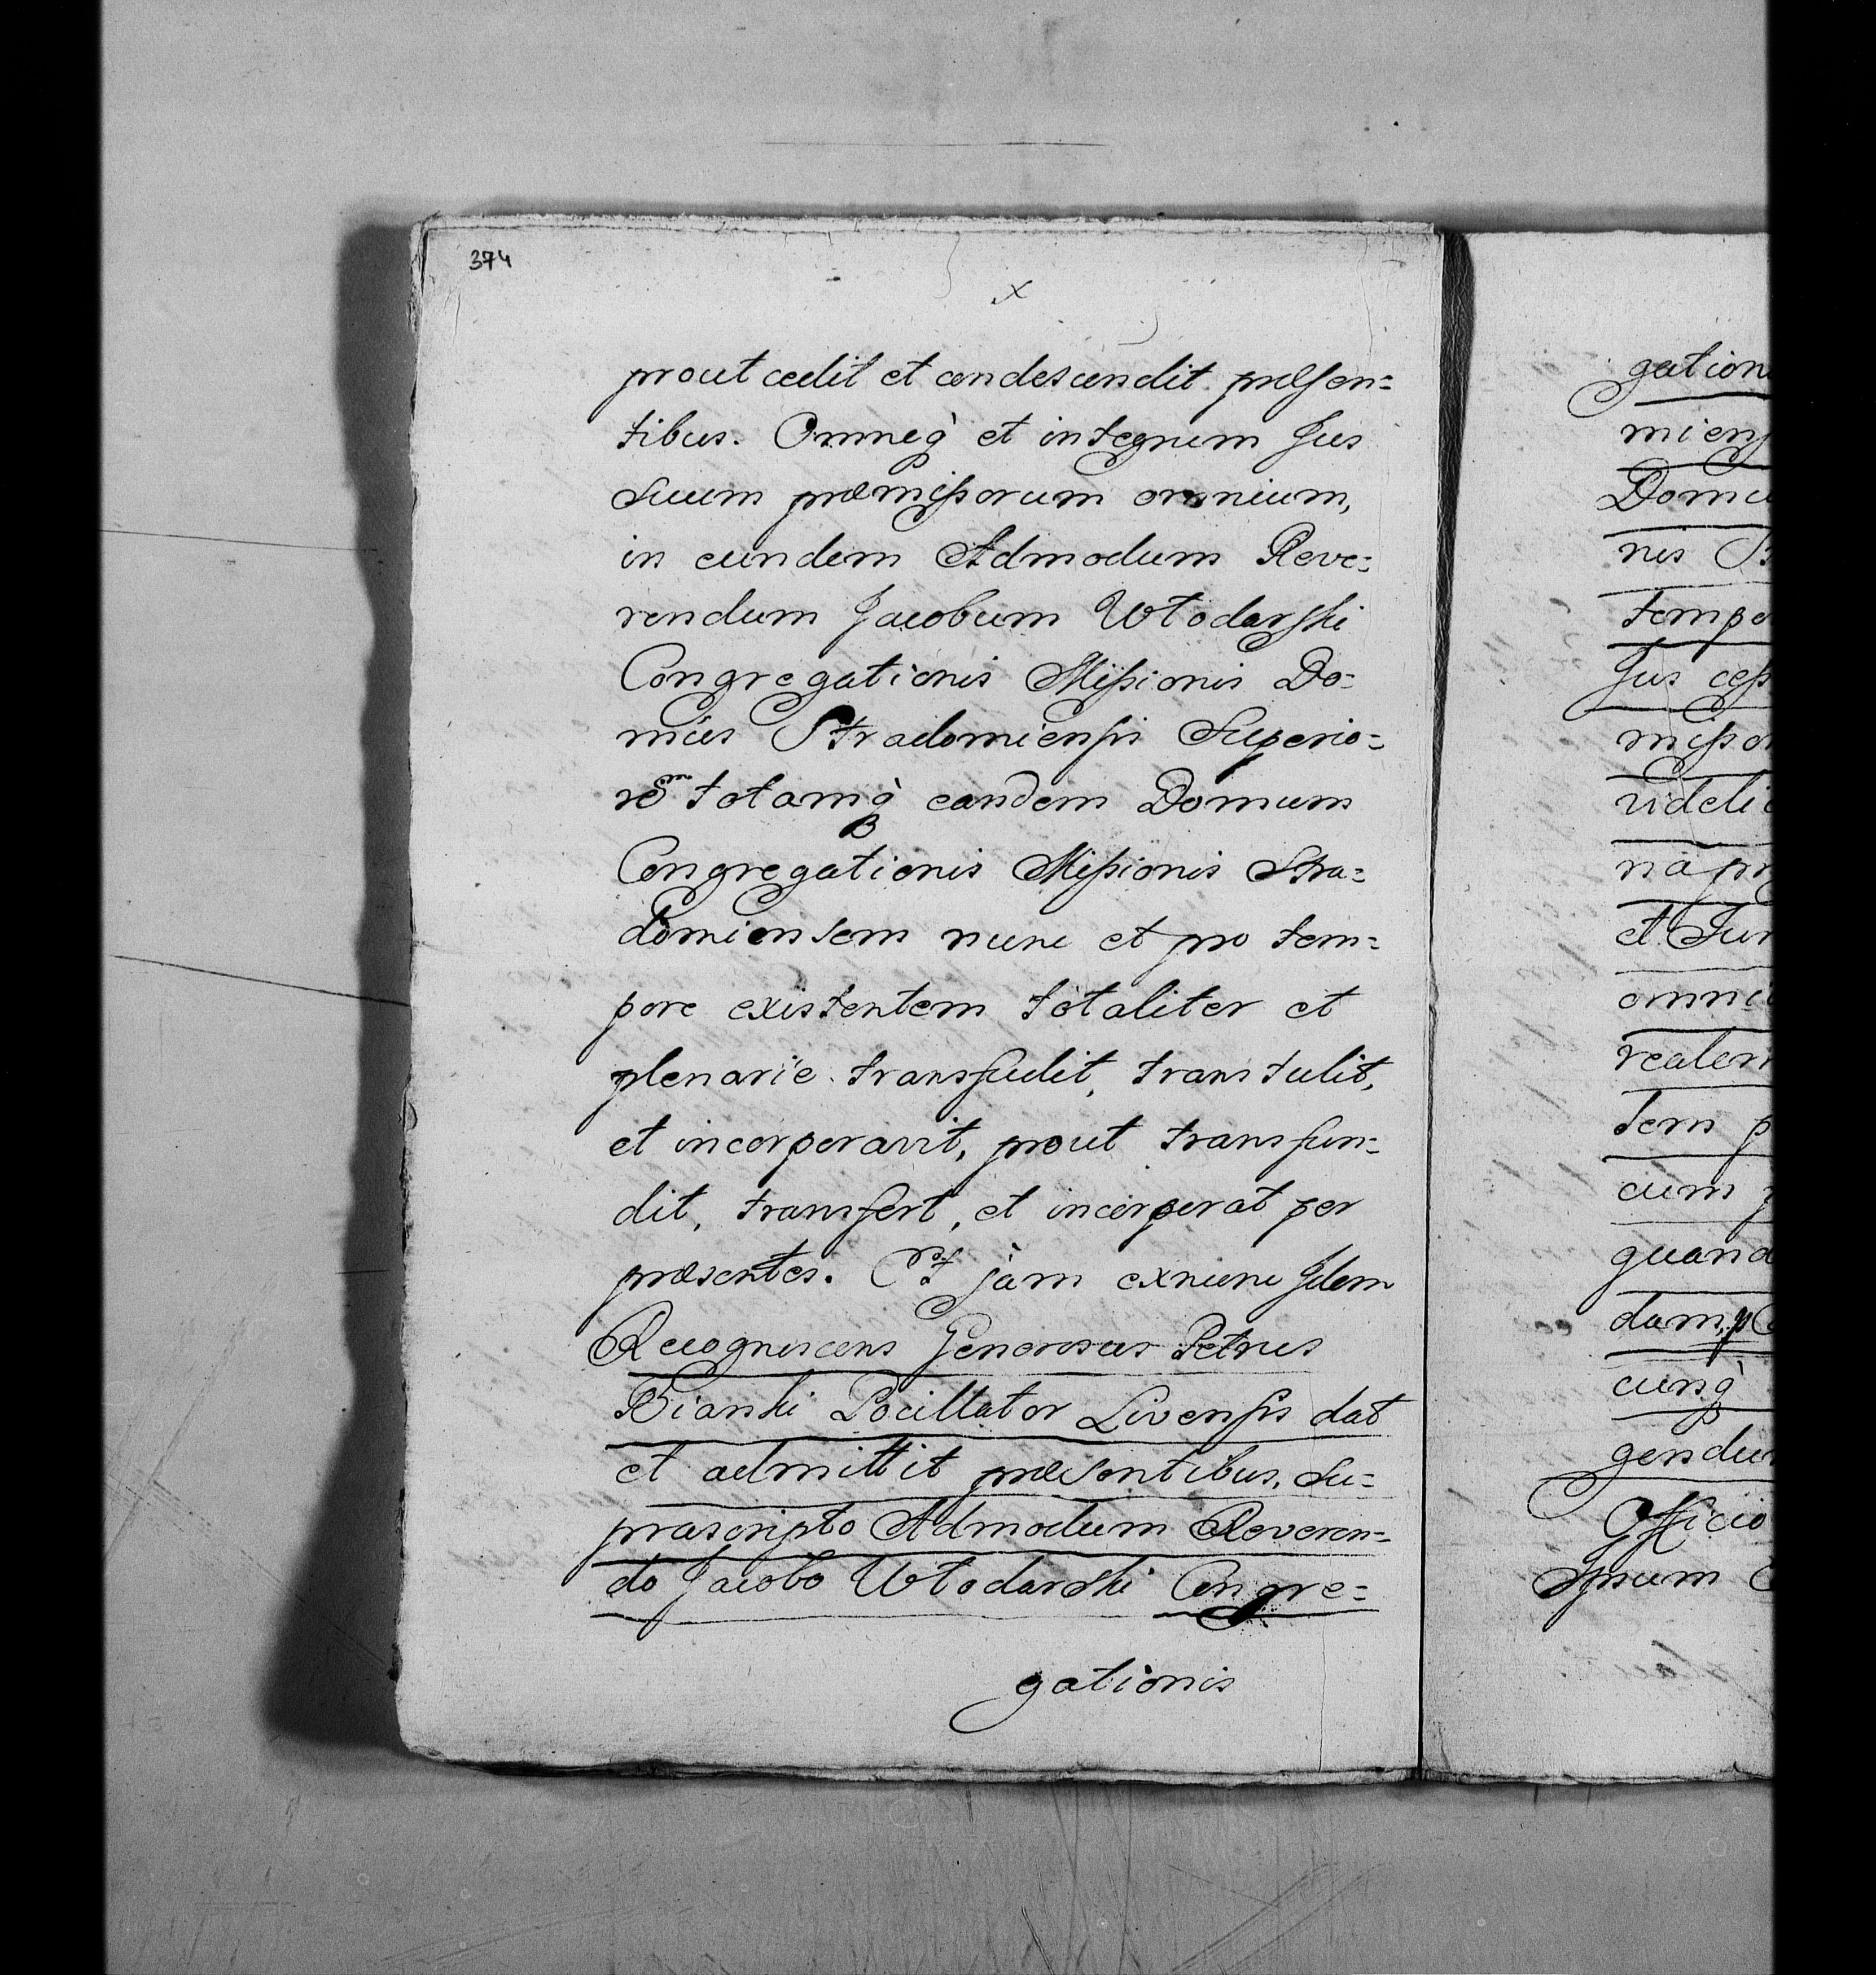 374
x
prout cedit et condescendit præsen=
tibus. Omneq̀ et integrum Jus
Suum præmissorum omnium,
in eundem Admodum Reve=
rendum Jacobum Włodarski
Congregationis Missionis Do=
mûs Stradomiensis Superio=
rem totamq̀ eandem Domum
Congregationis Missionis Stra=
domiensem nunc et pro tem=
pore existentem totaliter et
plenarie transfudit, transtulit,
et incorporavit, prout transfun=
dit, transfert, et incorporat per
præsentes. Et jàm exnunc Idem
Recogniscens Generosus Petrus
Bianki Pocillator Livensis dat
et admittit præsentibus, Su=
prascripto Admodum Reveren=
do Jacobo Włodarski Congre=
gationis
gation
miens
Domu
nis
tempo
Jus cess
missor
videli
na
et Jur
omni
realem
tem p
cum
quand
dam,
cunq̀
gendu
Officio
Ipsum